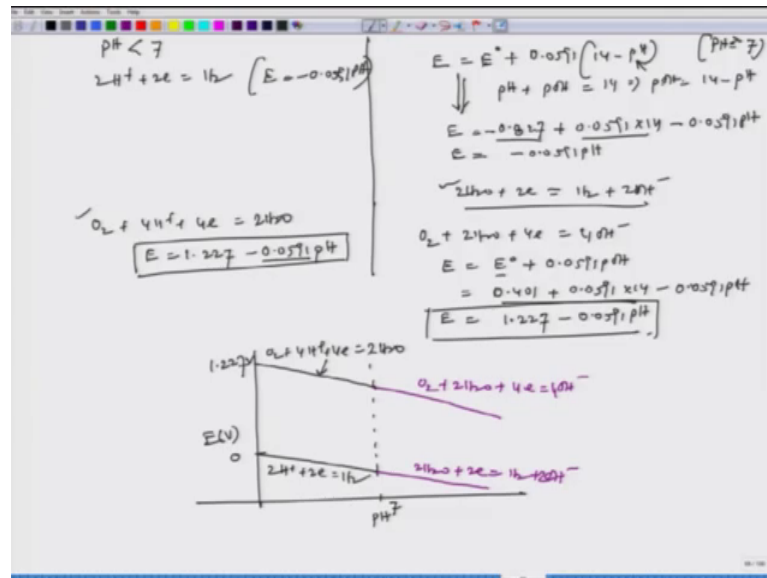 pH < 7
2H⁺ + 2e = H₂ (E = -0.0591pH)
O₂ + 4H⁺ + 4e = 2H₂O
E = 1.227 - 0.0591pH
E = E° + 0.0591(14 - pH) (pH ≥ 7)
pH + pOH = 14 ⇒ pOH = 14 - pH
E = -0.827 + 0.0591×14 - 0.0591pH
E = -0.0591pH
2H₂O + 2e = H₂ + 2OH⁻
O₂ + 2H₂O + 4e = 4OH⁻
E = E° + 0.0591pOH
= 0.401 + 0.0591×14 - 0.0591pH
E = 1.227 - 0.0591pH
1.227
O₂ + 4H⁺ + 4e = 2H₂O
O₂ + 2H₂O + 4e = 4OH⁻
E(V)
0
2H⁺ + 2e = H₂
2H₂O + 2e = H₂ + 2OH⁻
7
pH